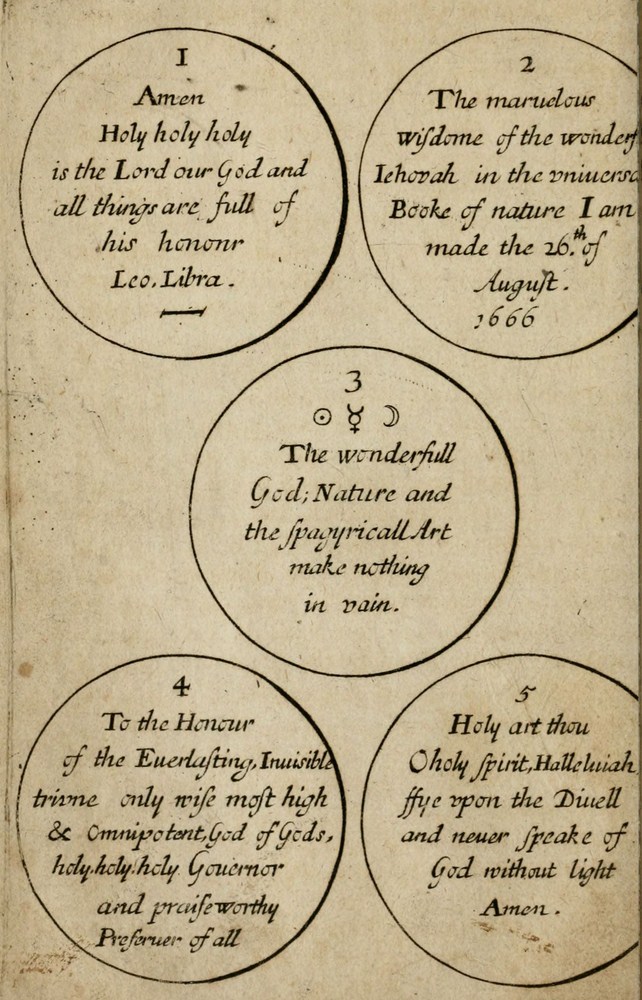 1
Amen
Holy holy holy
is the Lord our God and
all things are full of
his honour
Leo, Libra.
2
The maruelous
wiſdome of the wonderf
Iehovah in the vniuersa
Booke of nature I am
made the 26.th of
Auguſt.
1666
3
☉ ☿ ☽
The wonderfull
God; Nature and
the ſpagyricall Art
make nothing
in vain.
4
To the Honour
of the Euerlaſting, Inuisible
triune only wiſe moſt high
& Omnipotent, God of Gods,
holy, holy, holy Gouernor
and praiſeworthy
Preſeruer of all
5
Holy art thou
O holy ſpirit, Halleluiah
ffye vpon the Diuell
and neuer ſpeake of
God without light
Amen.